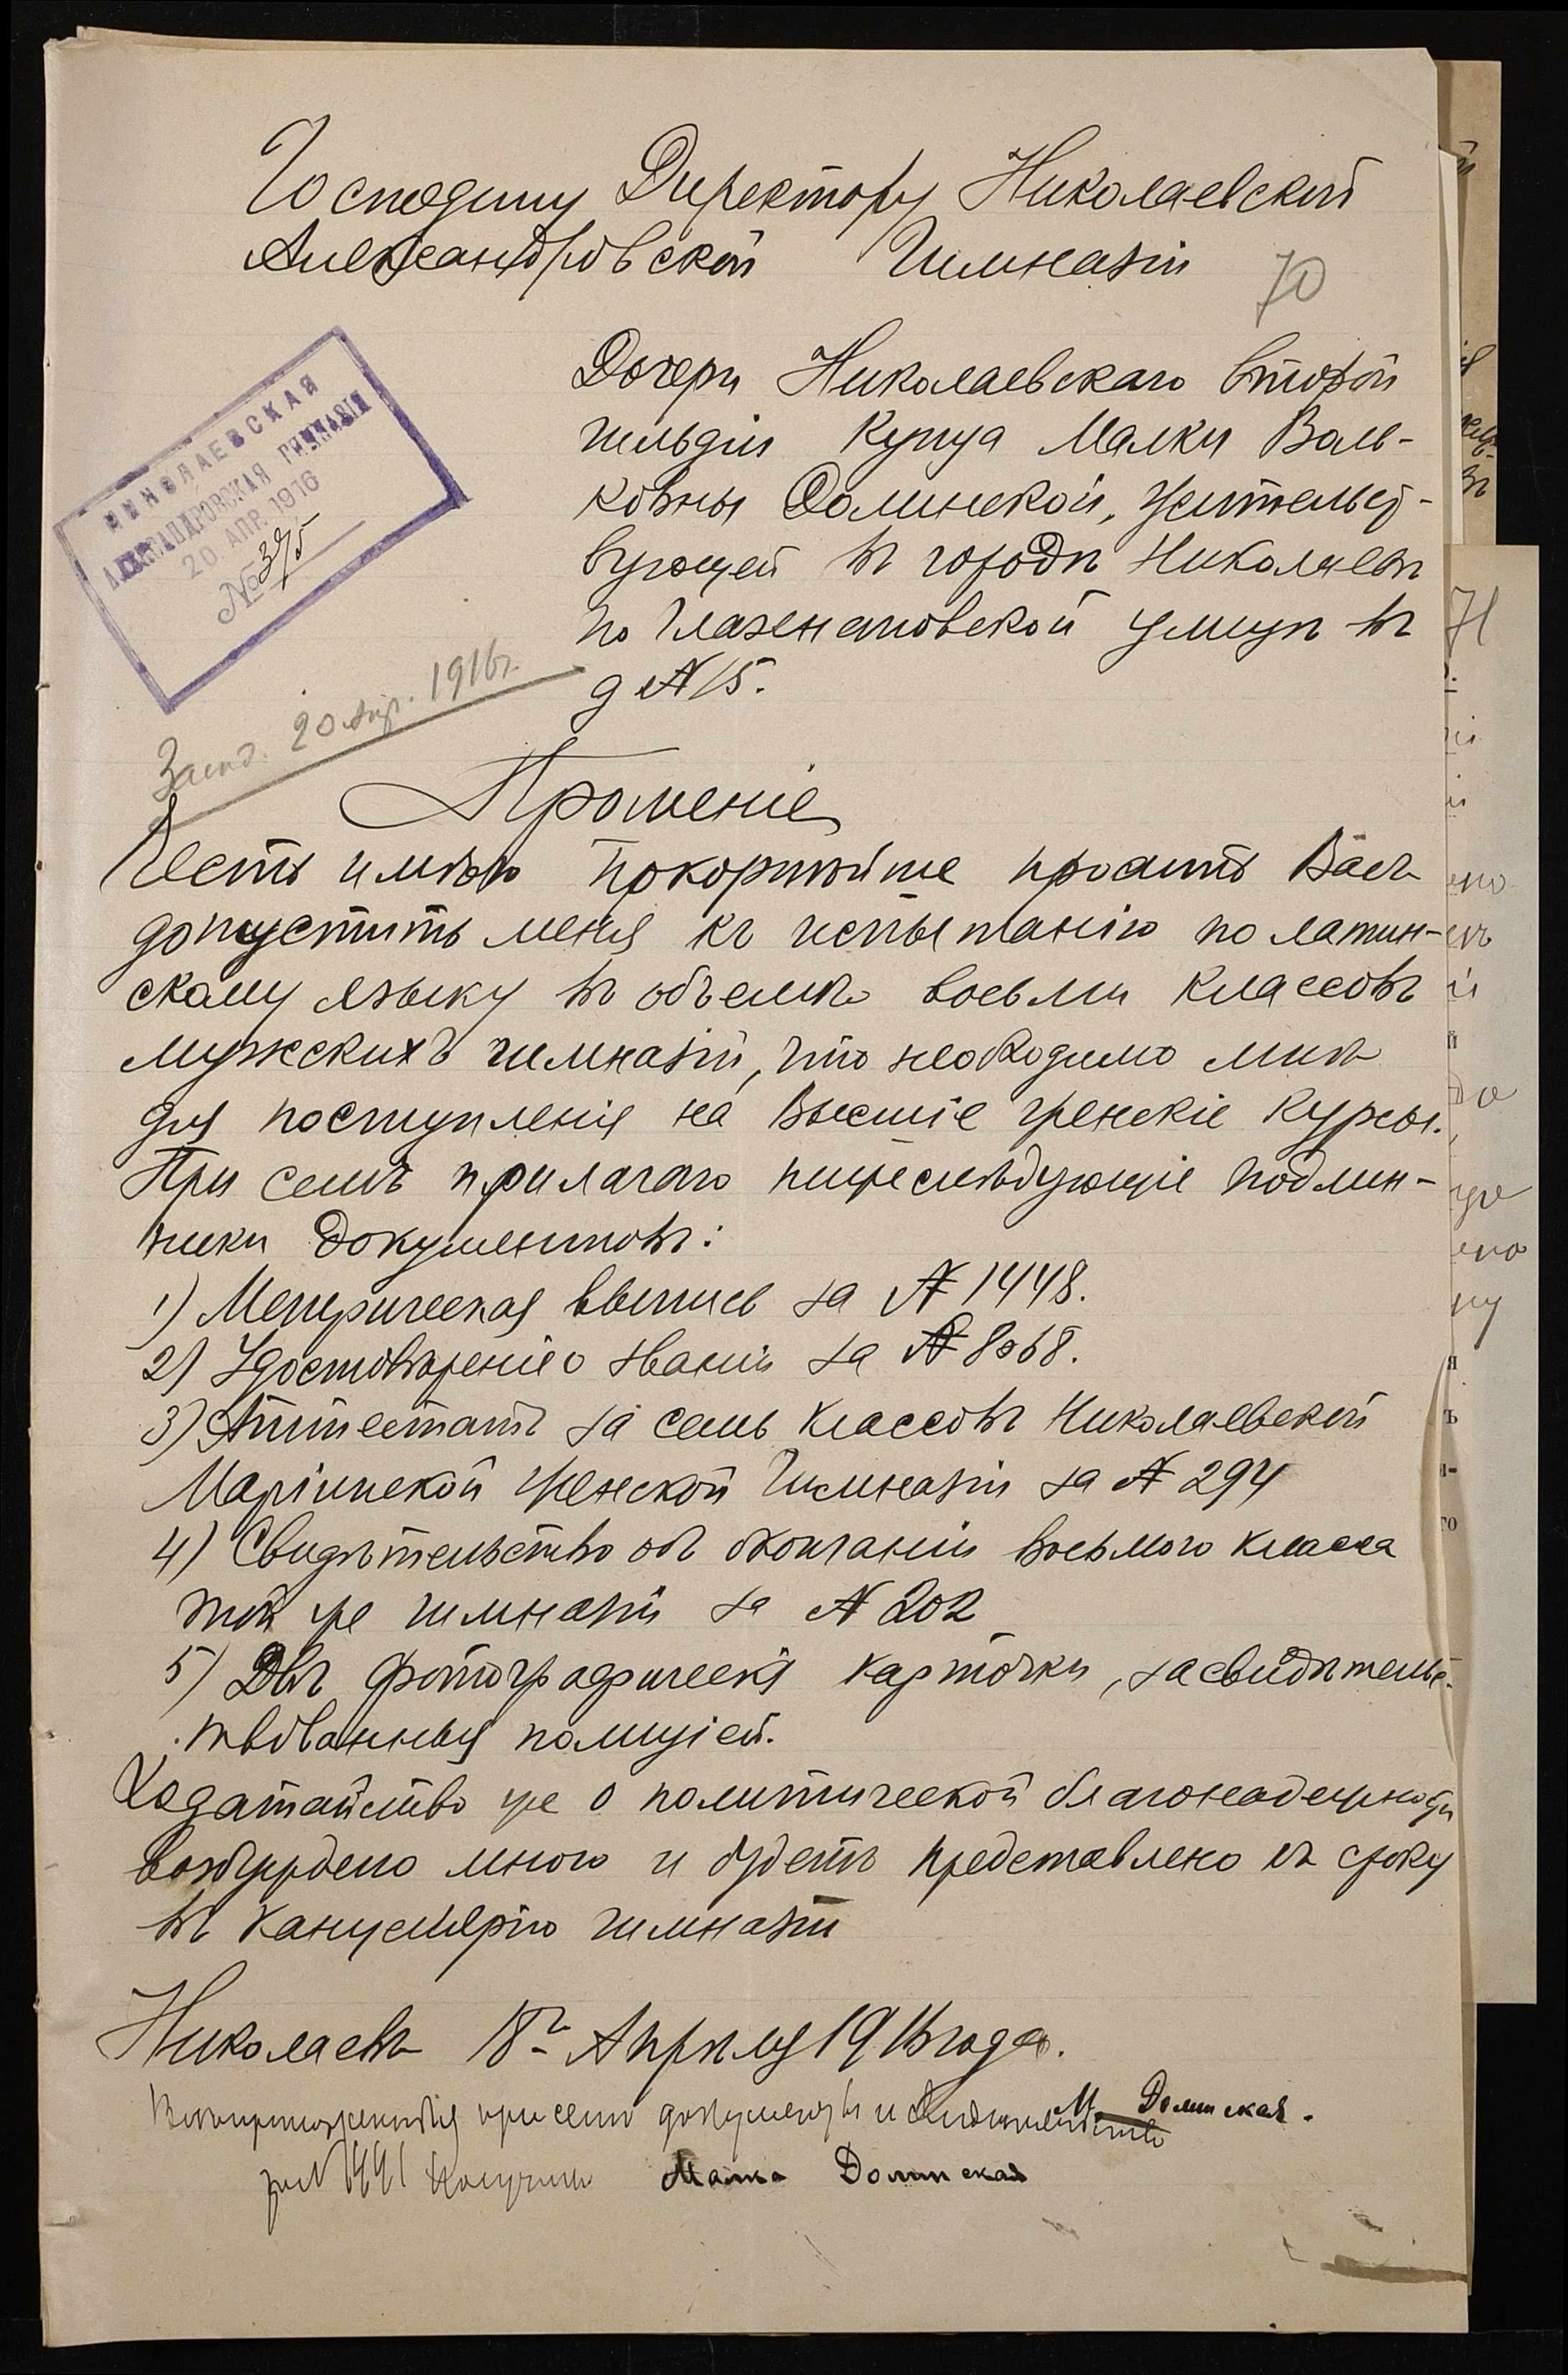 Господину Директору Николаевской
Александровской Гимназіи
70
Дочери Николаевскаго второй
гильдіи купца Малки Воль-
ковны Долинской, жительст-
вующей въ городѣ Николаевѣ
по Глазенаповской улицѣ въ
д № 15.
НИКОЛАЕВСКАЯ
АЛЕКСАНДРОВСКАЯ ГИМНАЗІЯ
20 АПР. 1916
№ 395
20 Апр. 1916 г.
Прошеніе
Честь имѣю покорнѣйше просить Васъ
допустить меня къ испытанію по латин-
скому языку въ объемѣ восьми классовъ
мужскихъ гимназій, что необходимо мнѣ
для поступленія на Высшіе женскіе курсы.
При семъ прилагаю нижеслѣдующіе подлин-
ники документовъ:
1) Метрическая выпись за № 1448.
2) Удостовѣреніе о званіи за № 8068.
3) Аттестатъ за семь классовъ Николаевской
Маріинской Женской Гимназіи за № 294
4) Свидѣтельство объ окончаніи восьмого класса
той же гимназіи за № 202
5) Двѣ фотографическія карточки, засвидѣтельс-
твованныя полиціей.
Ходатайство же о политической благонадежности
возбуждено мною и будетъ представлено къ сроку
въ канцелярію гимназіи
Николаевъ 18го Апрѣля 1916 года.
М. Долинская.
при семъ документы и свидѣтельство
за № 1441 получила Малка Долинская
71